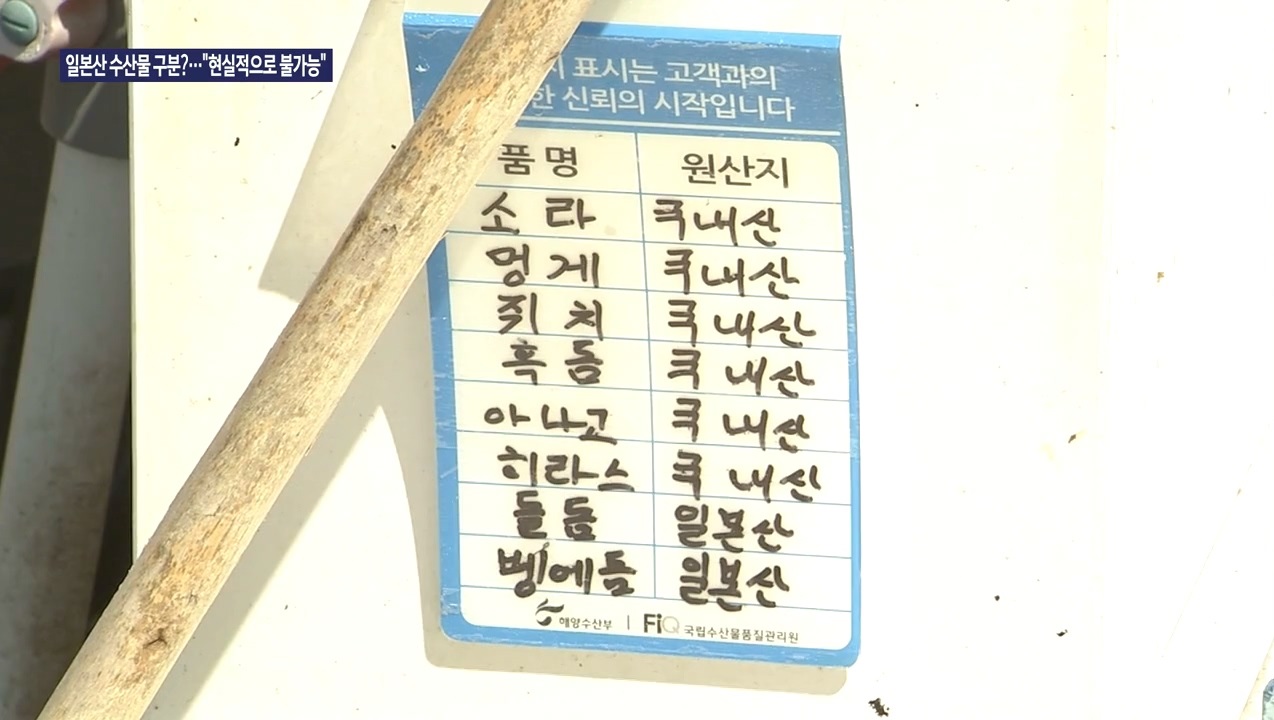 일본산 수산물 구분?…"현실적으로 불가능"
표시는 고객과의
한 신뢰의 시작입니다
품명 원산지
소라 국내산
멍게 국내산
쥐치 국내산
흑돔 국내산
아나고 국내산
히라스 국내산
돌돔 일본산
벵에돔 일본산
해양수산부 | FiQ 국립수산물품질관리원